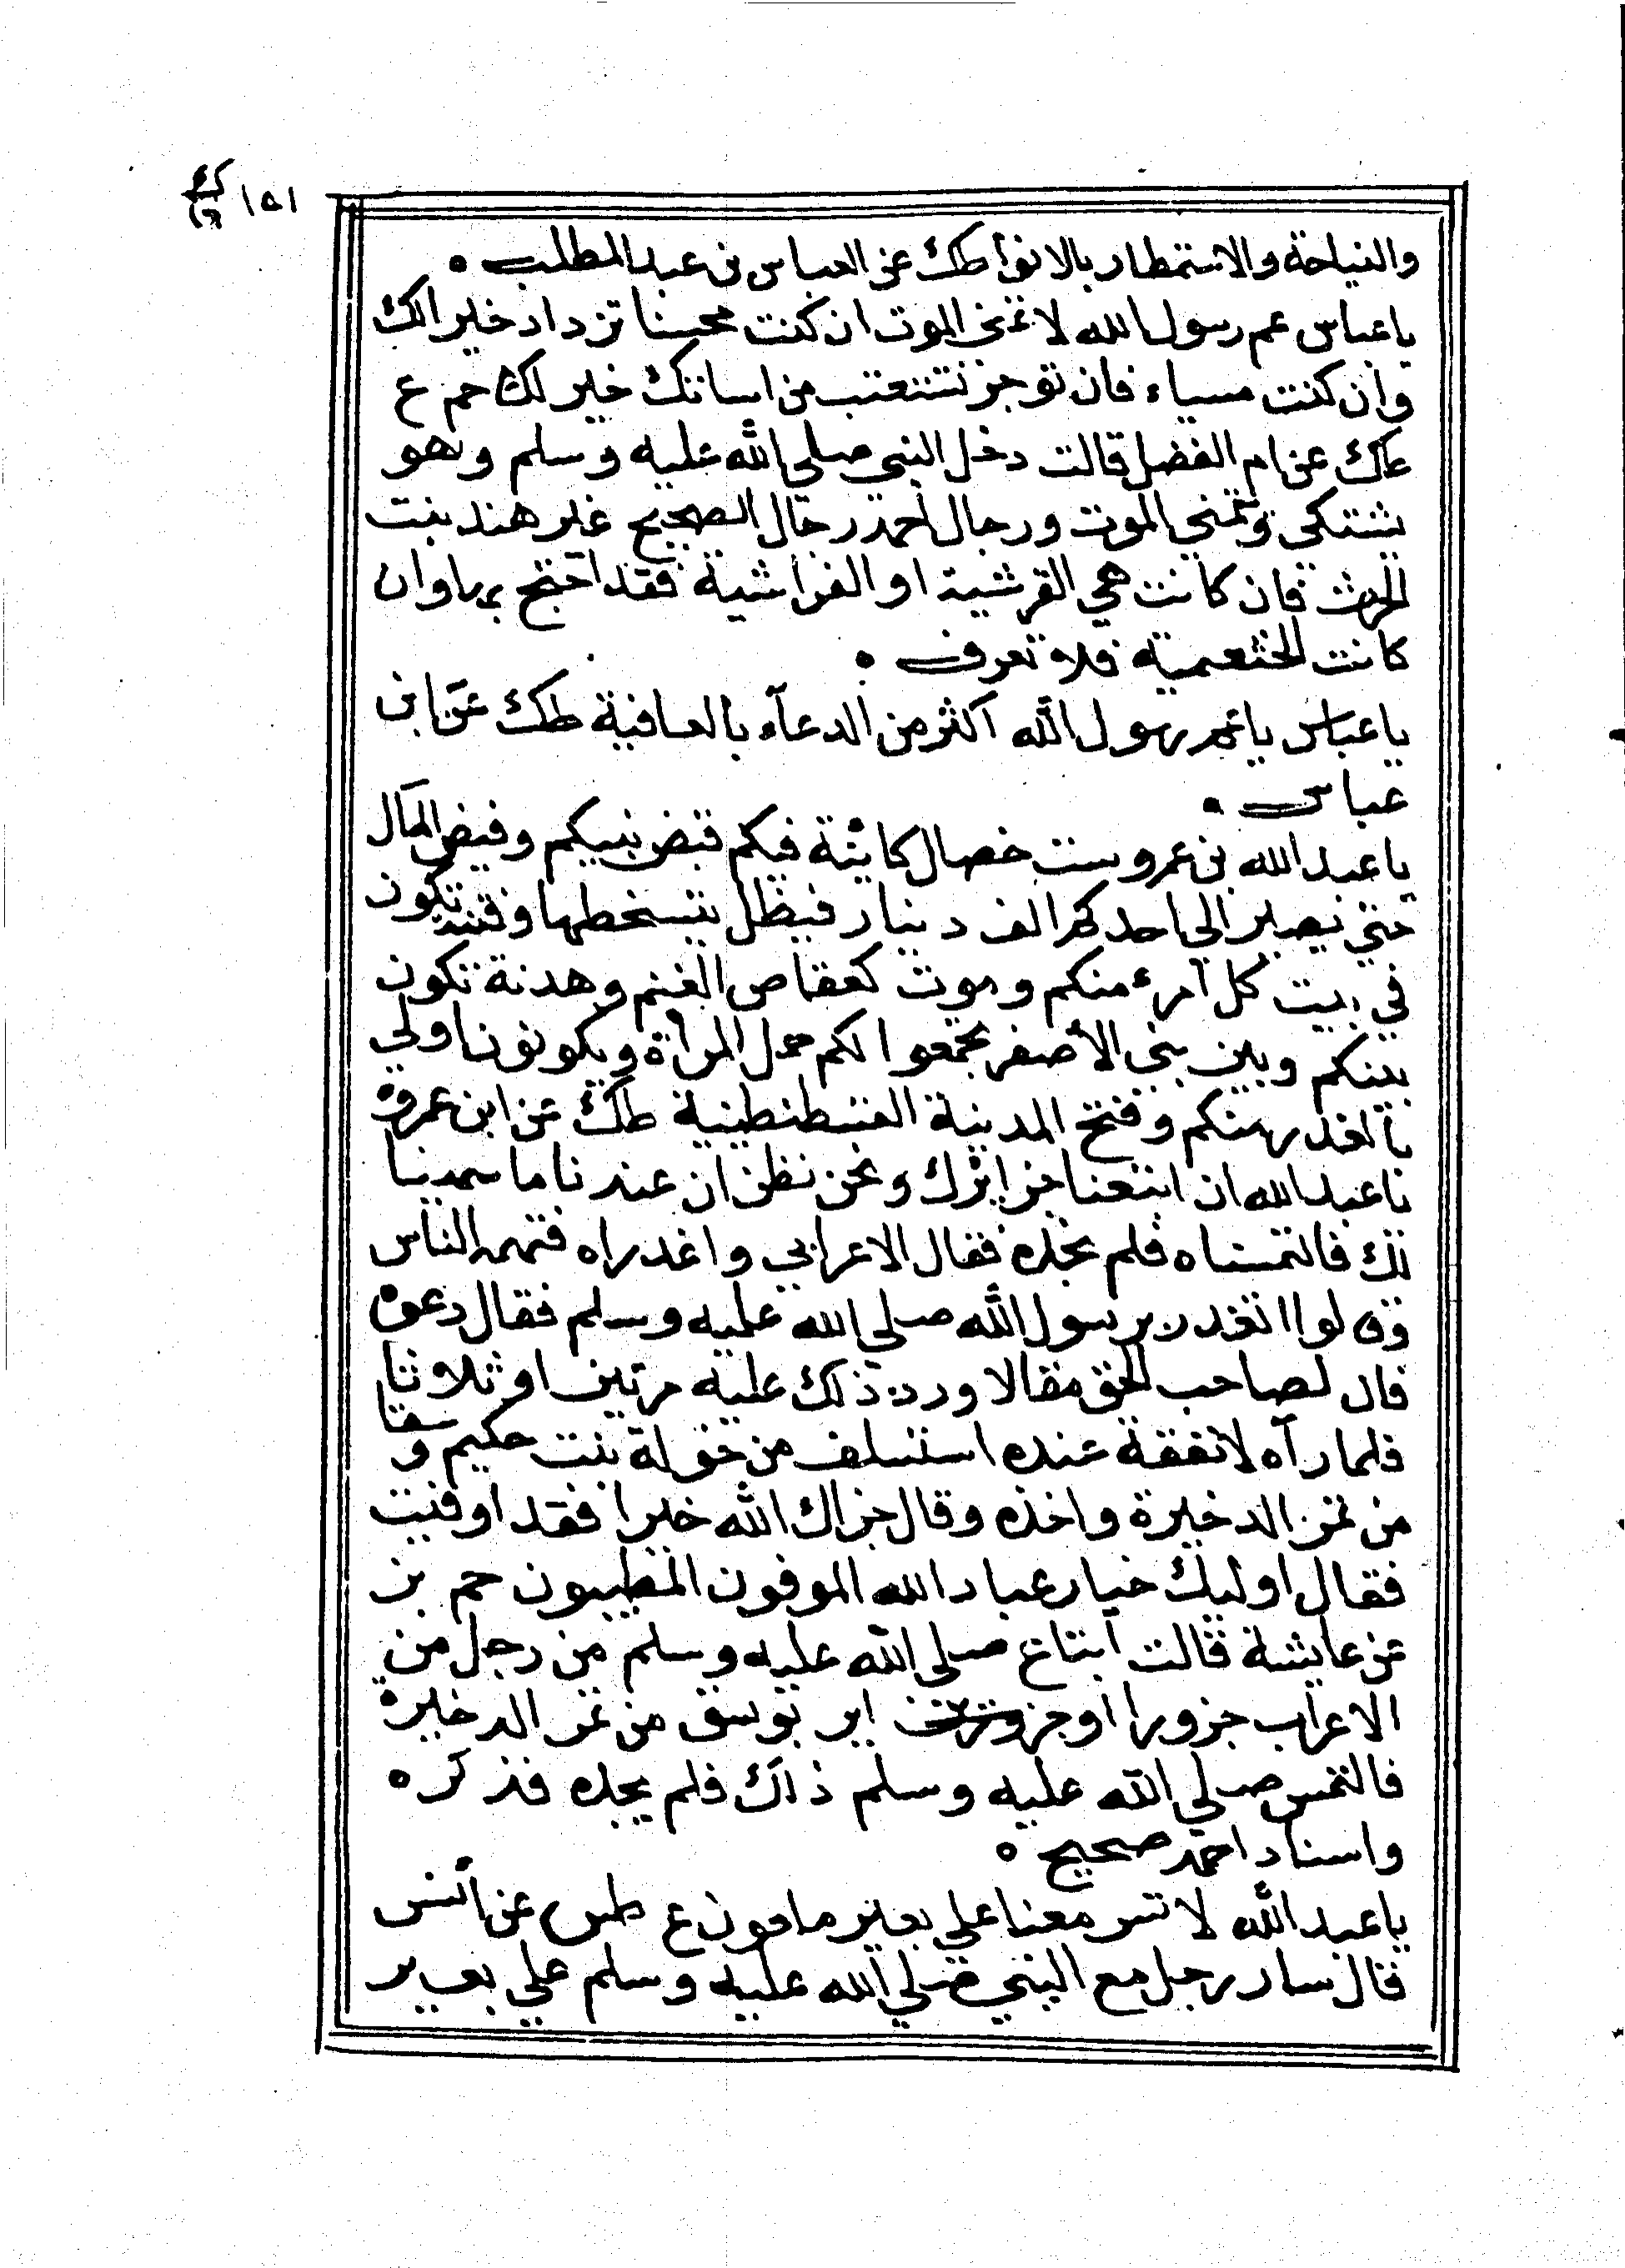 ١٥١
والنياحة والاستمطار بالانوأ طك عن العباس بن عبد المطلب ه
يا عباس عم رسول الله لا تمني الموت ان كنت محسنا تزداد خير الك
وان كنت مسياء فان توخر تستعتب من اساتك خير لك حم ع
طك عن ام الفضل قالت دخل النبي صلي الله عليه وسلم وهو
يشتكي وتمني الموت ورجال احمد رجال الصحيح غير هند بنت
الحرث فان كانت هي القرشية او الفراشية فقد احتج بها وان
كانت الخثعمية فلا تعرف ه
يا عباس يا عم رسول الله اكثر من الدعآء بالعافية طك عن ابن
عباس ه
يا عبد الله بن عمرو ست خصال كائنة فيكم قبض نبيكم وفيض المال
حتي يصير الي احدكم الف دينار فيظل يتسخطها وفتنه تكون
في بيت كل امرء منكم وموت كعقاص الغنم وهدنة تكون
بينكم وبين بني الأصفر يجمعوا لكم حمل المرأة ويكونون اولي
بالغدر منكم وفتح المدينة القسطنطينية طك عن ابن عمرو ه
يا عبد الله ان ابتعنا جزايرك ونحن نظن ان عندنا ما سمينا
لك فالتمسناه فلم نجده فقال الاعرابي واغدراه فنهمه الناس
وقالوا اتغدر برسول الله صلي الله عليه وسلم فقال دعوه
فان لصاحب الحق مقالا وردد ذلك عليه مرتين او ثلاوثا
فلما رآه لا نفقة عنده استسلف من خولة بنت حكيم وسقا
من تمر الدخيرة واخذه وقال جزاك الله خيرا فقد اوفيت
فقال اوليك خيار عباد الله الموفون المطيبون حم بز
عن عايشة قالت ابتاع صلي الله عليه وسلم من رجل من
الاعراب جزورا او جزو اير بوسق من تمر الدخيره
فالتمس صلي الله عليه وسلم ذاك فلم يجده فذكره
واسناد احمد صحيح ه
يا عبد الله لا تسر معنا علي بعير ملعون ع طس عن أنس
قال سار رجل مع النبي صلي الله عليه وسلم علي بعير